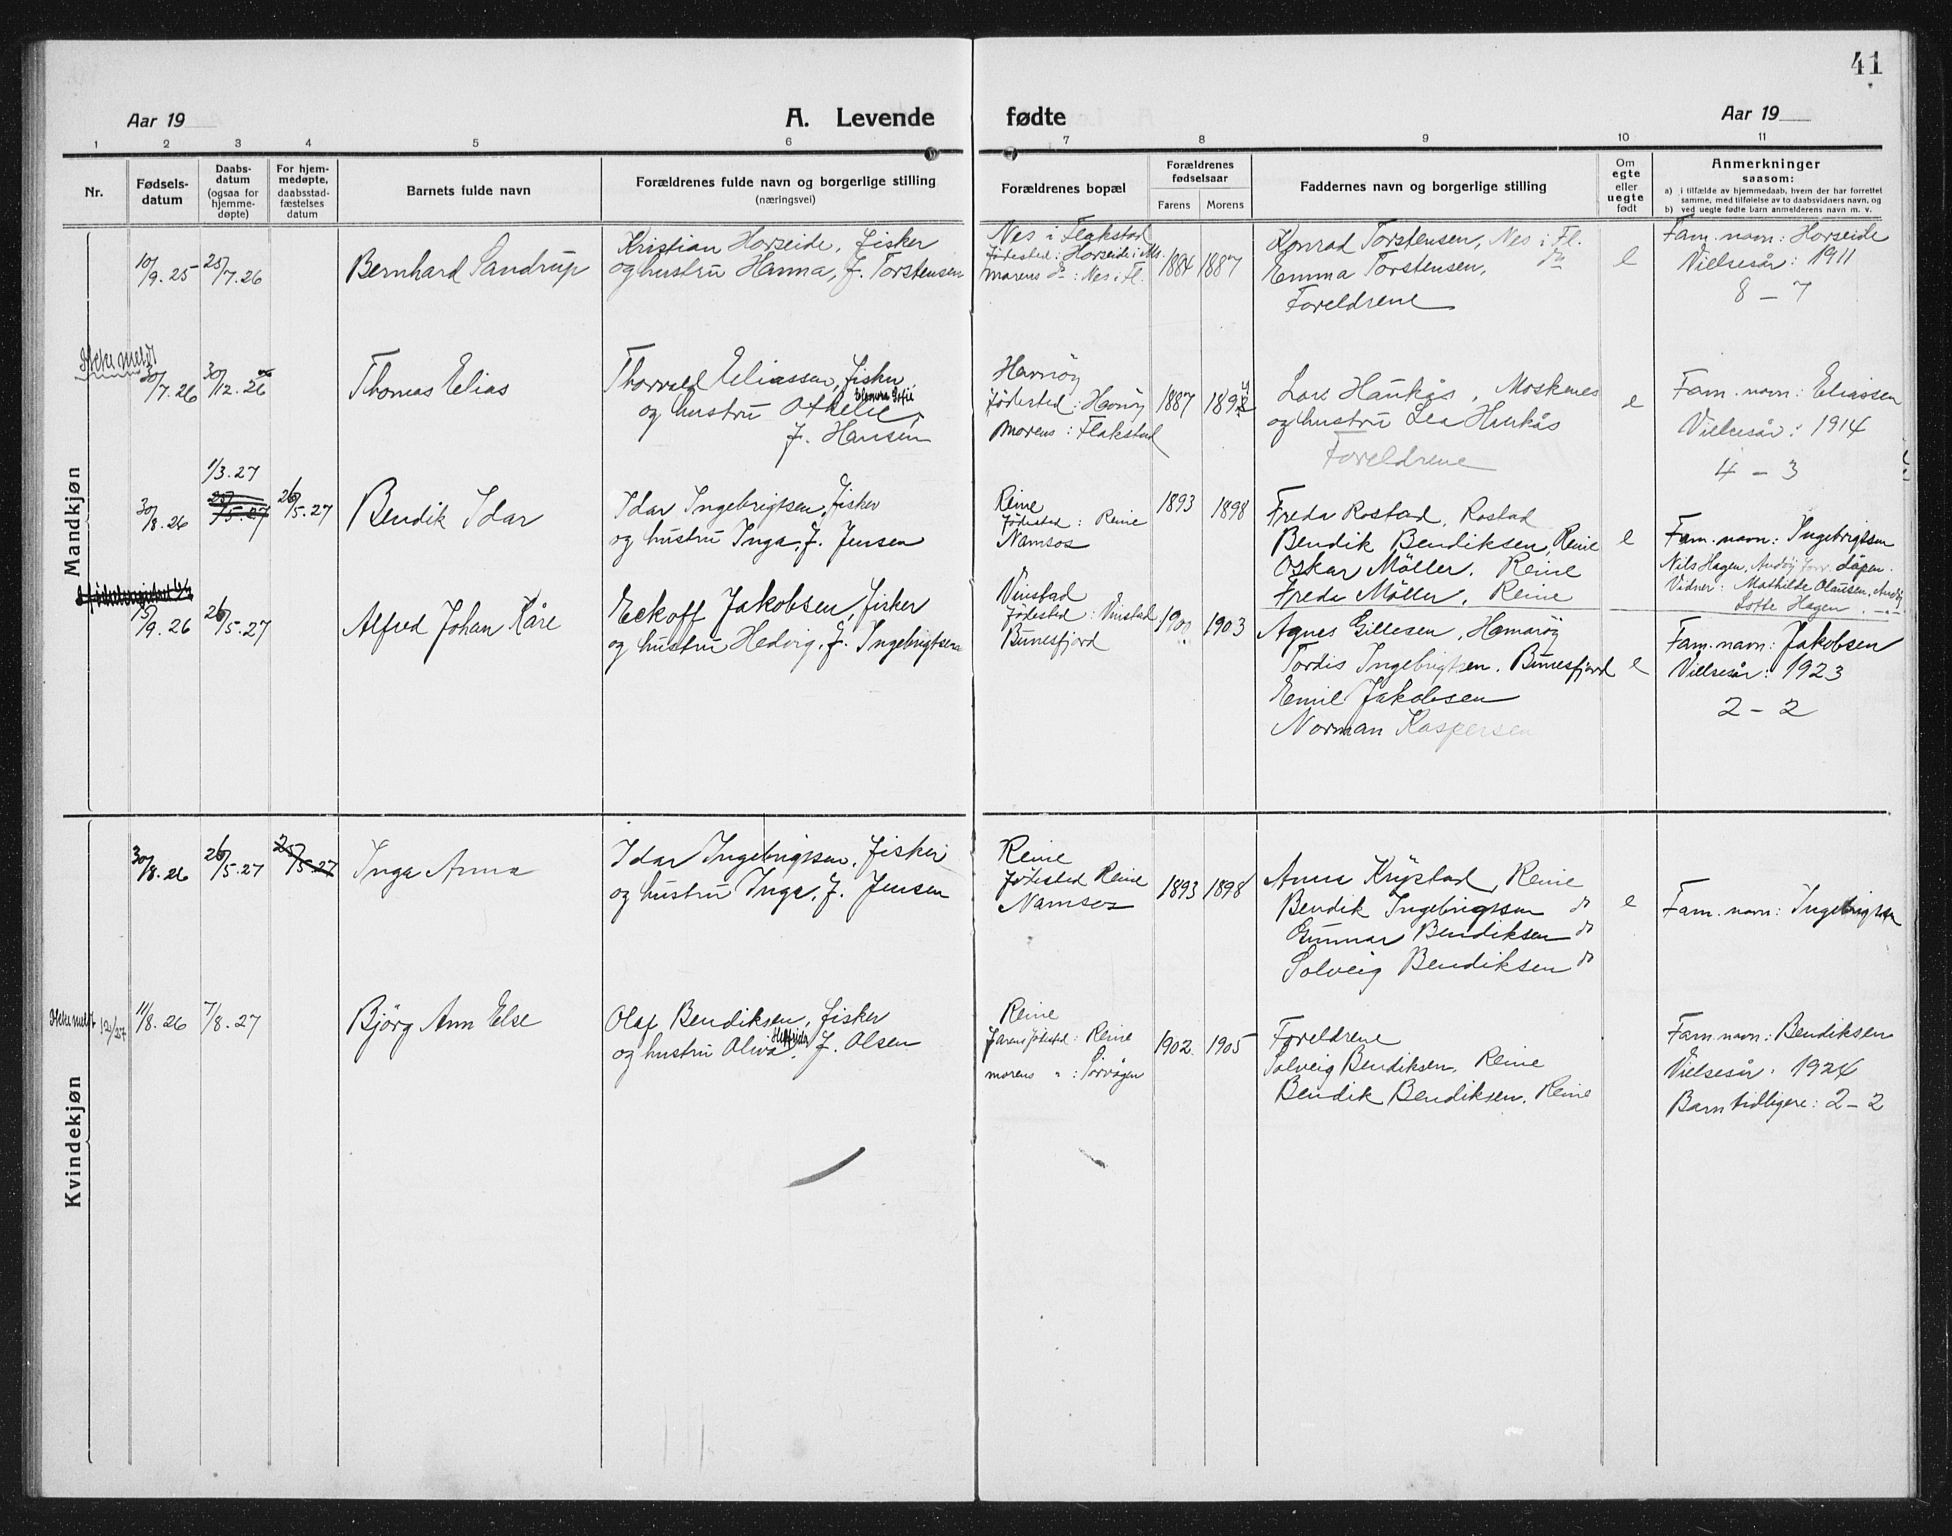 41
Aar 19
A. Levende
fødte
Aar 19
1 2 3 4 5 6 7 8 9 10 11
Nr.
Fødsels-
datum
Daabs-
datum
(ogsaa for
hjemme-
døpte)
For hjem-
medøpte,
daabsstad-
fæstelses
datum
Barnets fulde navn
Forældrenes fulde navn og borgerlige stilling
(næringsvei)
Forældrenes bopæl
Forældrenes
fødselsaar
Farens Morens
Faddernes navn og borgerlige stilling
Om
egte
eller
uegte
født
Anmerkninger
saasom:
a) i tilfælde av hjemmedaab, hvem der har forrettet
samme, med tilføielse av to daabsvidners navn, og
b) ved uegte fødte barn anmelderens navn m. v.
Mandkjøn
10/9.25
25/7.26
Bernhard Sandrup
Kristian Horseide, fisker
og hustru Hanna, f. Torstensen
Nes i Flakstad
Fødested: Horseide i Ms.
Morens do: Nes i Fl.
1884 1887
Konrad Torstensen, Nes i Fl.
Emma Torstensen, do
Foreldrene
e
Fam. navn: Horseide
Vielsesår: 1911
8 – 7
Ikke meldt
30/7.26
30/12.26
Thomas Elias
Thorvald Eliassen, fisker
og hustru Othelie,
f. Hansen
Hamnøy
Fødested: Hamnøy
Morens: Flakstad
1887
Lars Haukås, Moskenes
og hustru Lea Haukås
Foreldrene
e
Fam. navn: Eliassen
Vielsesår: 1914
4 – 3
30/8.26
1/3.27
25/5.27
26/5.27
Bendik Idar
Idar Ingebrigtsen, fisker
og hustru Inga, f. Jensen
Reine
Fødested: Reine
Namsos
1893 1898
Freda Rostad, Rostad
Bendik Bendiksen, Reine
Oskar Möller, Reine
Freda Möller, Reine
e
Fam. navn: Ingebrigtsen
Nils Hagen, Andöy
Vidner: Mathilde Olausen, Andöy
Lotte Hagen
9.26
26/5.27
Alfred Johan Kåre
Eckoff Jakobsen, fisker
og hustru Hedvig, f. Ingebrigtsen
Vinstad
Fødested: Vinstad
Bunesfjord
1903
Agnes Gillesen, Hamarøy
Tordis Ingebrigtsen, Bunesfjord
Emil Jakobsen
Norman Kaspersen
e
Fam. navn: Jakobsen
Vielsesår: 1923
2 – 2
Kvindekjøn
30/8.26
26/5.27
25/5.27
Inga Anna
Idar Ingebrigtsen, fisker
og hustru Inga, f. Jensen
Reine
Fødested Reine
Namsos
1893 1898
Anna Krystad, Reine
Bendik Ingebrigtsen do
Gunnar Bendiksen do
Solveig Bendiksen do
e
Fam. navn: Ingebrigtsen
Ikke meldt
11/8.26
7/8.27
Bjørg Ann Else
Olaf Bendiksen, fisker
og hustru Oliva, f. Olsen
Reine
Farens fødested: Reine
morens " : Sørvågen
1902. 1905
Foreldrene
Solveig Bendiksen, Reine
Bendik Bendiksen, Reine
Fam. navn: Bendiksen
Vielsesår: 1924
Barn tidligere: 2 – 2